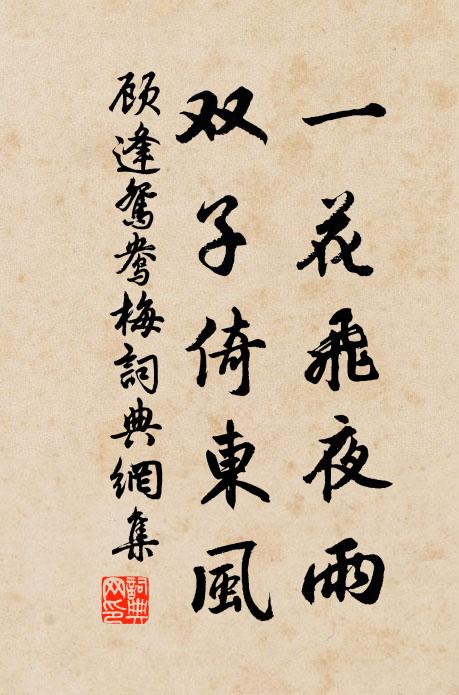 一花飛夜雨
双子倚東風
顾逢鴛鴦梅詞典網集
詞典
网印